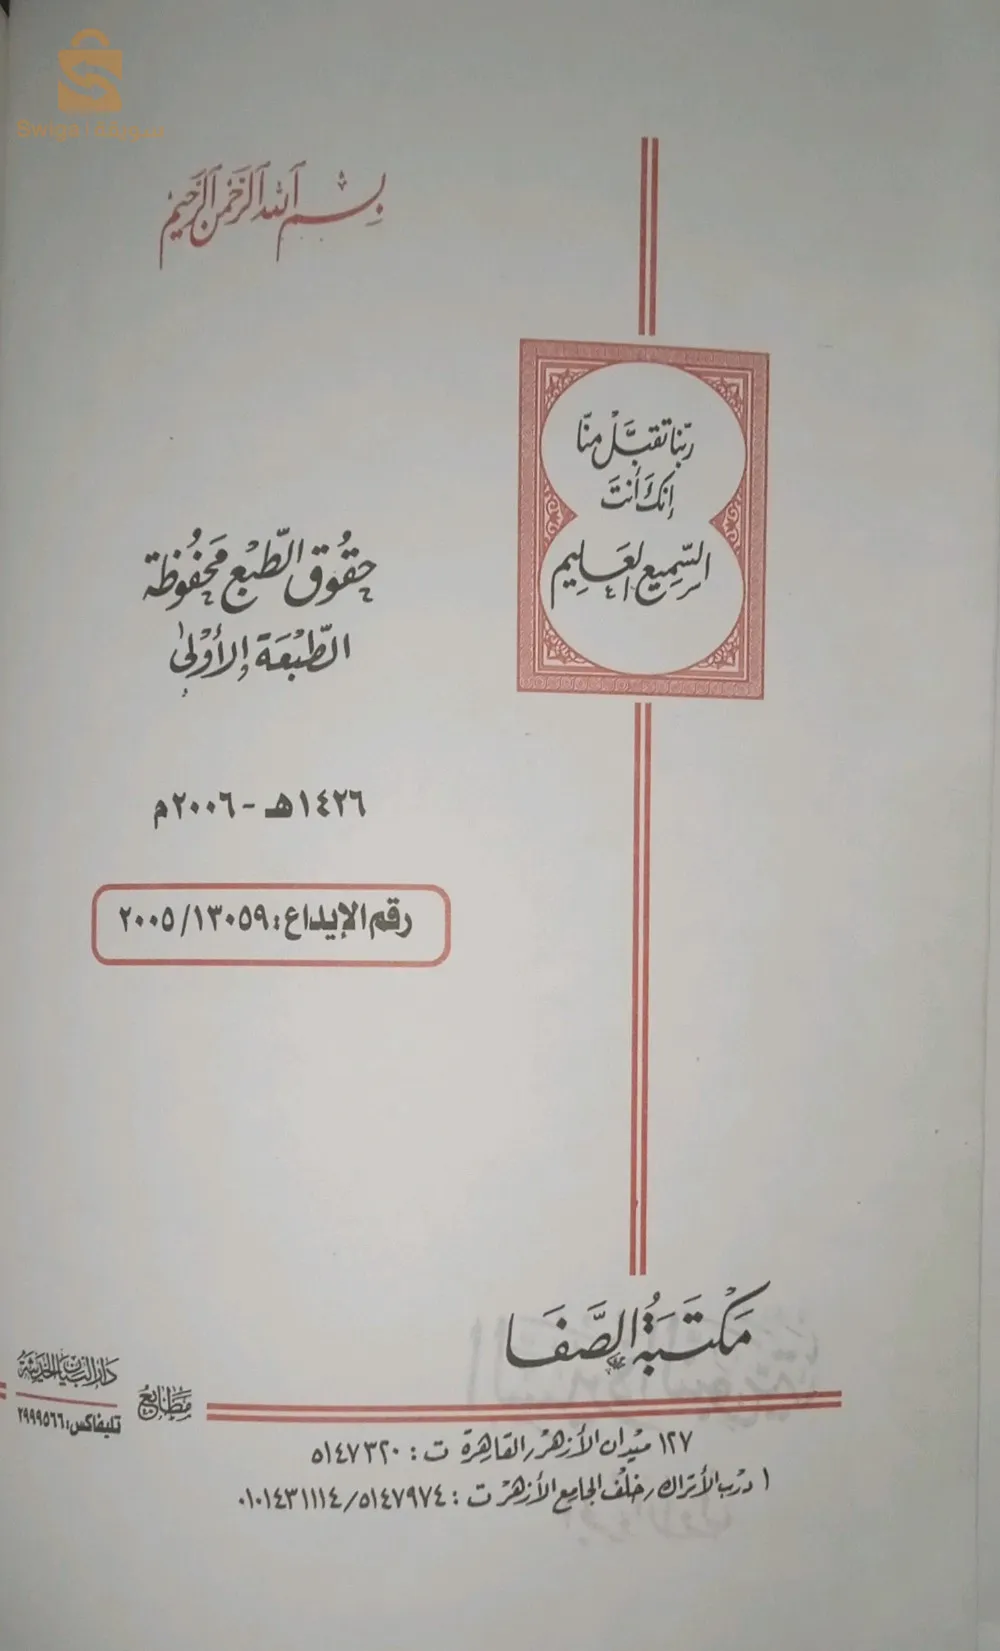 بسم الله الرحمن الرحيم
ربّنا تقبَّلْ منّا
إنكَ أنتَ
السَّمِيع العَليم
حقُوق الطّبْع محَفُوظة
الطّبْعَة الأُوْلىٰ
١٤٢٦هـ - ٢٠٠٦م
رقم الإيداع: ٢٠٠٥/١٣٠٥٩
مَكْتَبَةُ الصَّفَا
مَطَابِعُ
دَارُ البَيَان الحَدِيثَة
تليفاكس: ٢٩٩٩٥٦٦
١٢٧ ميْدان الأزهَر/القاهِرَة ت: ٥١٤٧٣٢٠
١ دَرْب الأتراك/خَلْف الجامِع الأزهَر ت: ٥١٤٧٩٧٤/٠١٠١٤٣١١١٤